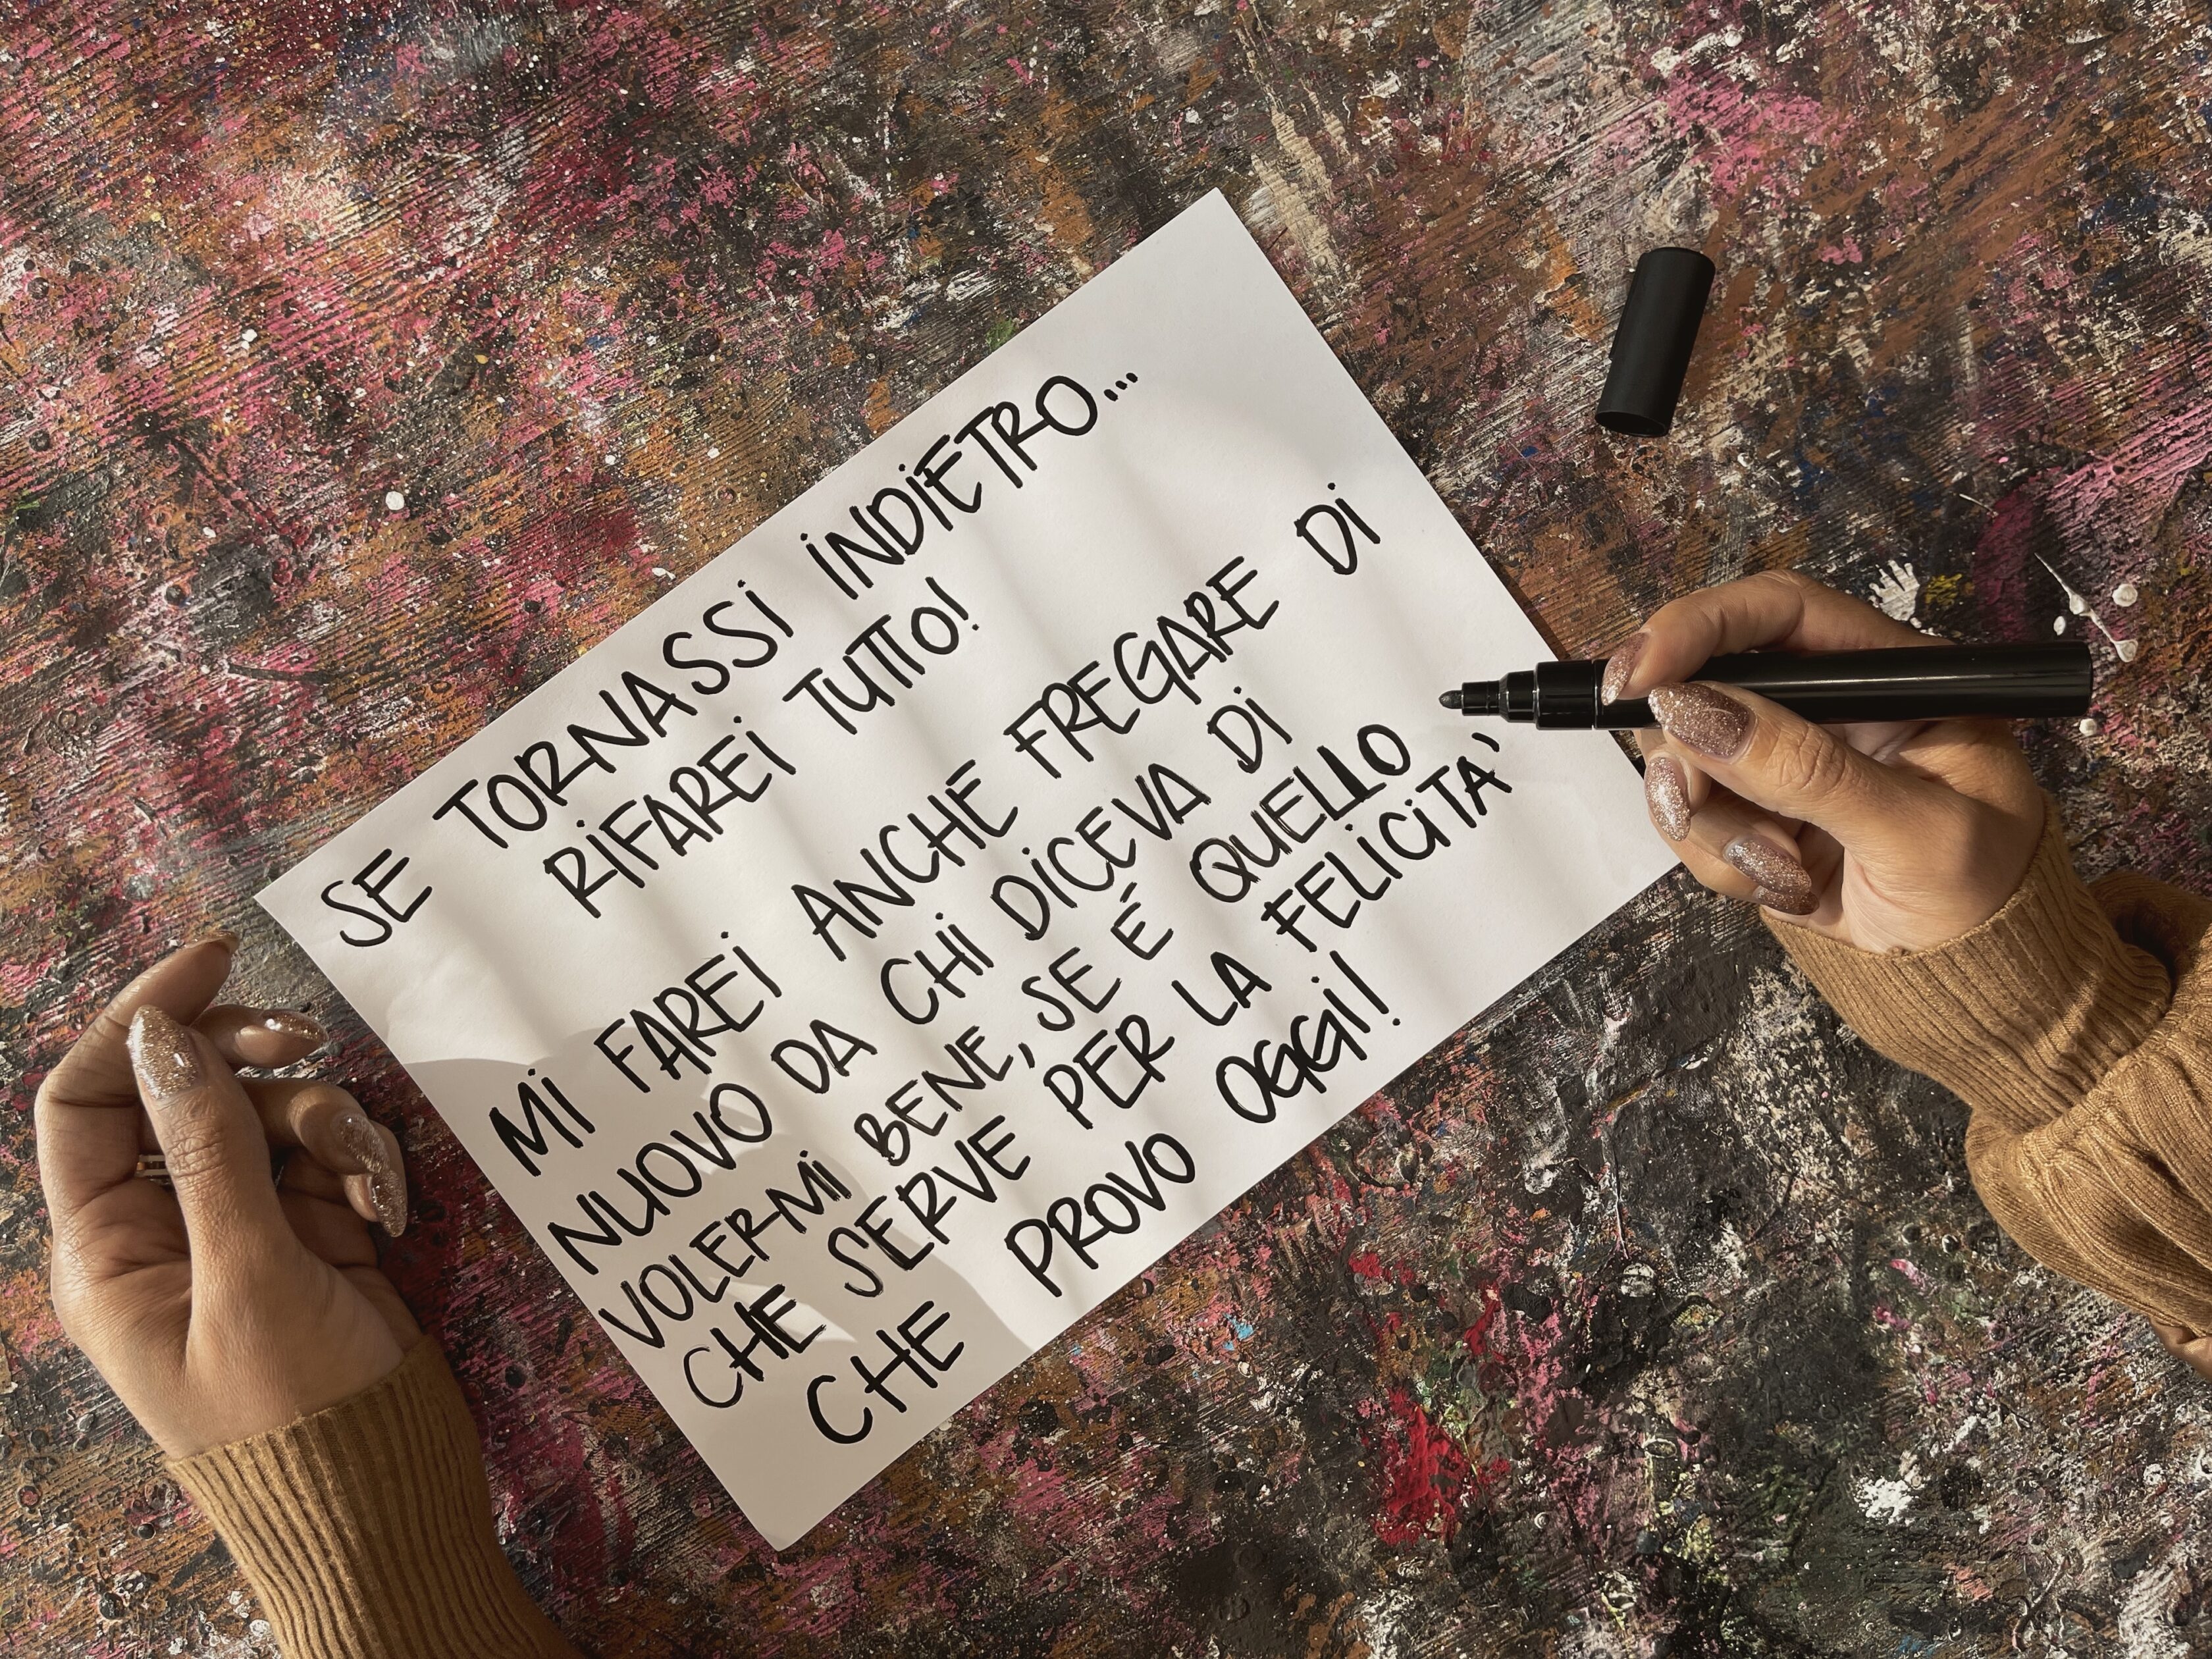 SE TORNASSI INDIETRO...
RIFAREI TUTTO!
MI FAREI ANCHE FREGARE DI
NUOVO DA CHI DICEVA DI
VOLERMI BENE, SE É QUELLO
CHE SERVE PER LA FELICITA'
CHE PROVO OGGI!